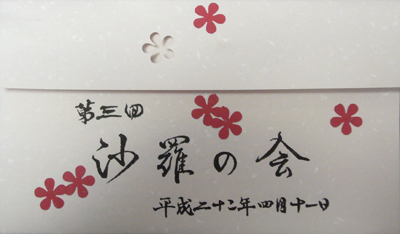 第三回
沙羅の会
平成二十二年四月十一日